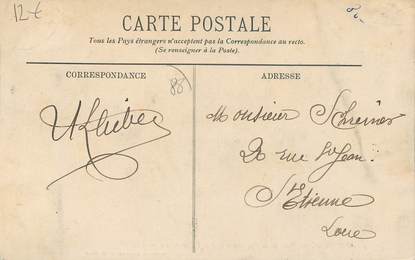 12€
CARTE POSTALE
Tous les Pays étrangers n'acceptent pas la Correspondance au recto.
(Se renseigner à la Poste).
CORRESPONDANCE
ADRESSE
Monsieur
20 rue St Jean
St Etienne
Loire